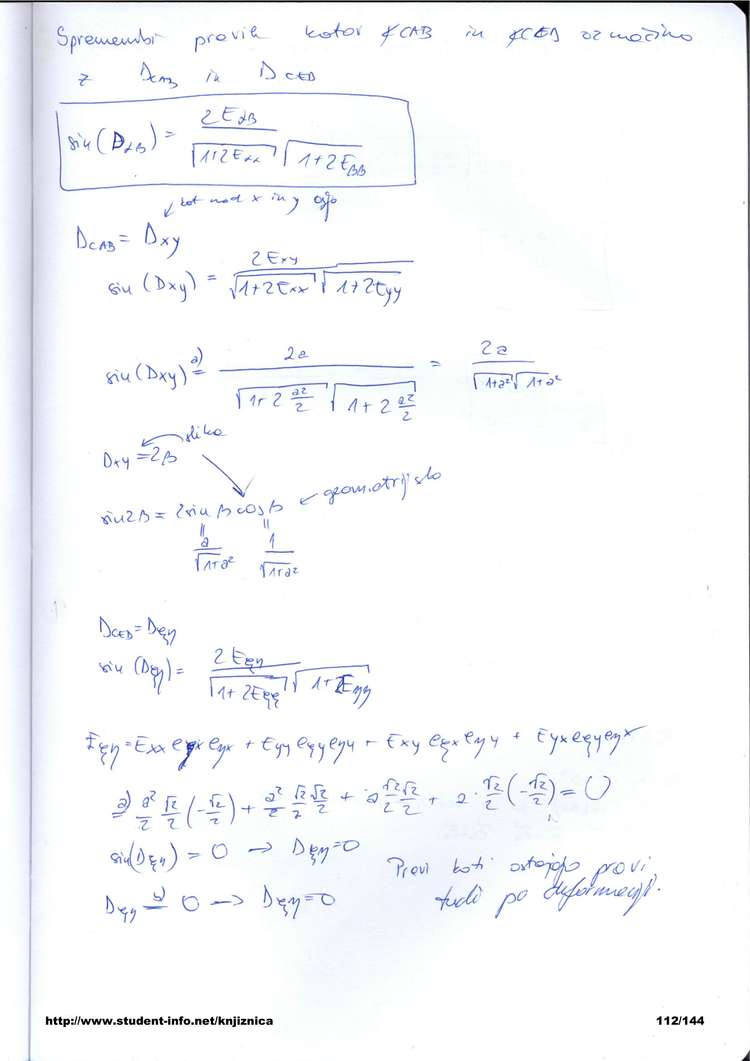 Spremembi pravih kotov ∢CAB in ∢CED označimo
z D_CAB in D_CED
sin(D_αβ) = 2E_αβ / (√(1+2E_αα) √(1+2E_ββ))
kot med x in y osjo
D_CAB = D_xy
sin(D_xy) = 2E_xy / (√(1+2E_xx) √(1+2E_yy))
sin(D_xy) =^a) 2a / (√(1+2 a²/2) √(1+2 a²/2)) = 2a / (√(1+a²) √(1+a²))
slika
D_xy = 2β
sin2β = 2sinβcosβ ← geometrijsko
a/√(1+a²) 1/√(1+a²)
D_CED = D_ξη
sin(D_ξη) = 2E_ξη / (√(1+2E_ξξ) √(1+2E_ηη))
E_ξη = E_xx e_ξx e_ηx + E_yy e_ξy e_ηy + E_xy e_ξx e_ηy + E_yx e_ξy e_ηx
=^a) a²/2 √2/2 (-√2/2) + a²/2 √2/2 √2/2 + a √2/2 √2/2 + a · √2/2 (-√2/2) = 0
sin(D_ξη) = 0 → D_ξη = 0
Pravi koti ostajajo pravi
tudi po deformaciji.
D_ξη = 0 → D_ξη = 0
http://www.student-info.net/knjiznica
112/144